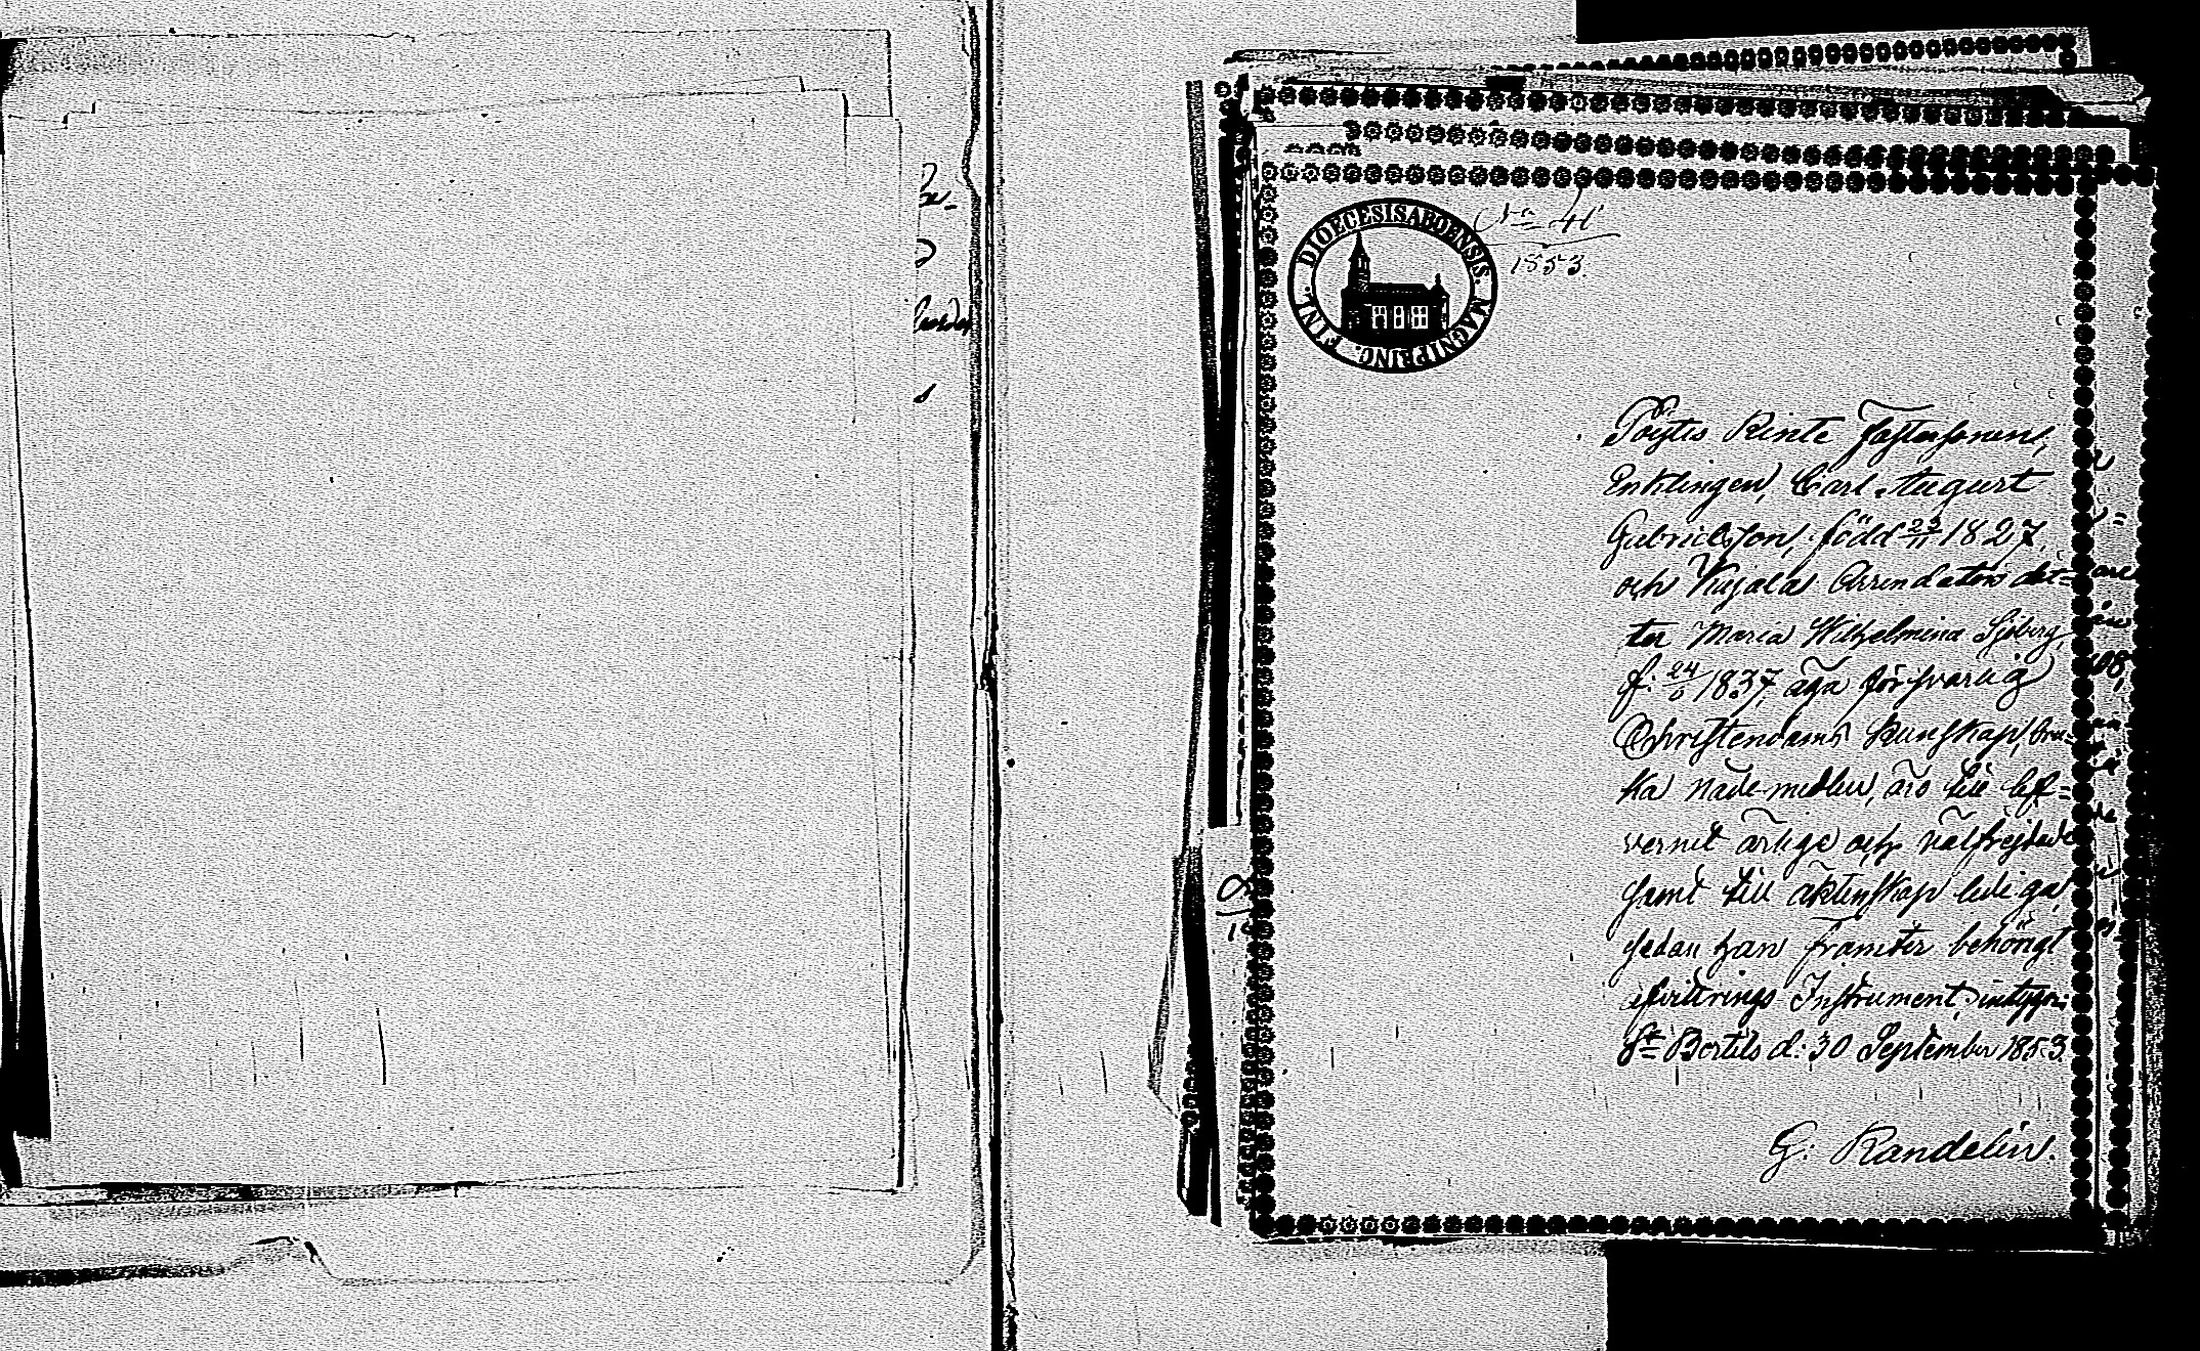 DIOECESIS ABOENSIS. MAGNI PRINC. FINL.
No 41
1853.
Pöytis Rinte Fostersonen,
Enklingen, Carl August
Gabrielsson, född 1827,
och Kujala Arrendators dot-
ter Maria Wilhelmina Sjöberg,
f: 1837, äga försvarlig
Christendoms kunskap, bru-
ka nådemedlen, äro till lef-
vernet ärlige och välfrejdade
samt till äktenskap lediga,
sedan han framter behörigt
afvittrings Instrument, intygar:
St Bertils d: 30 September 1853.
G: Randelin.